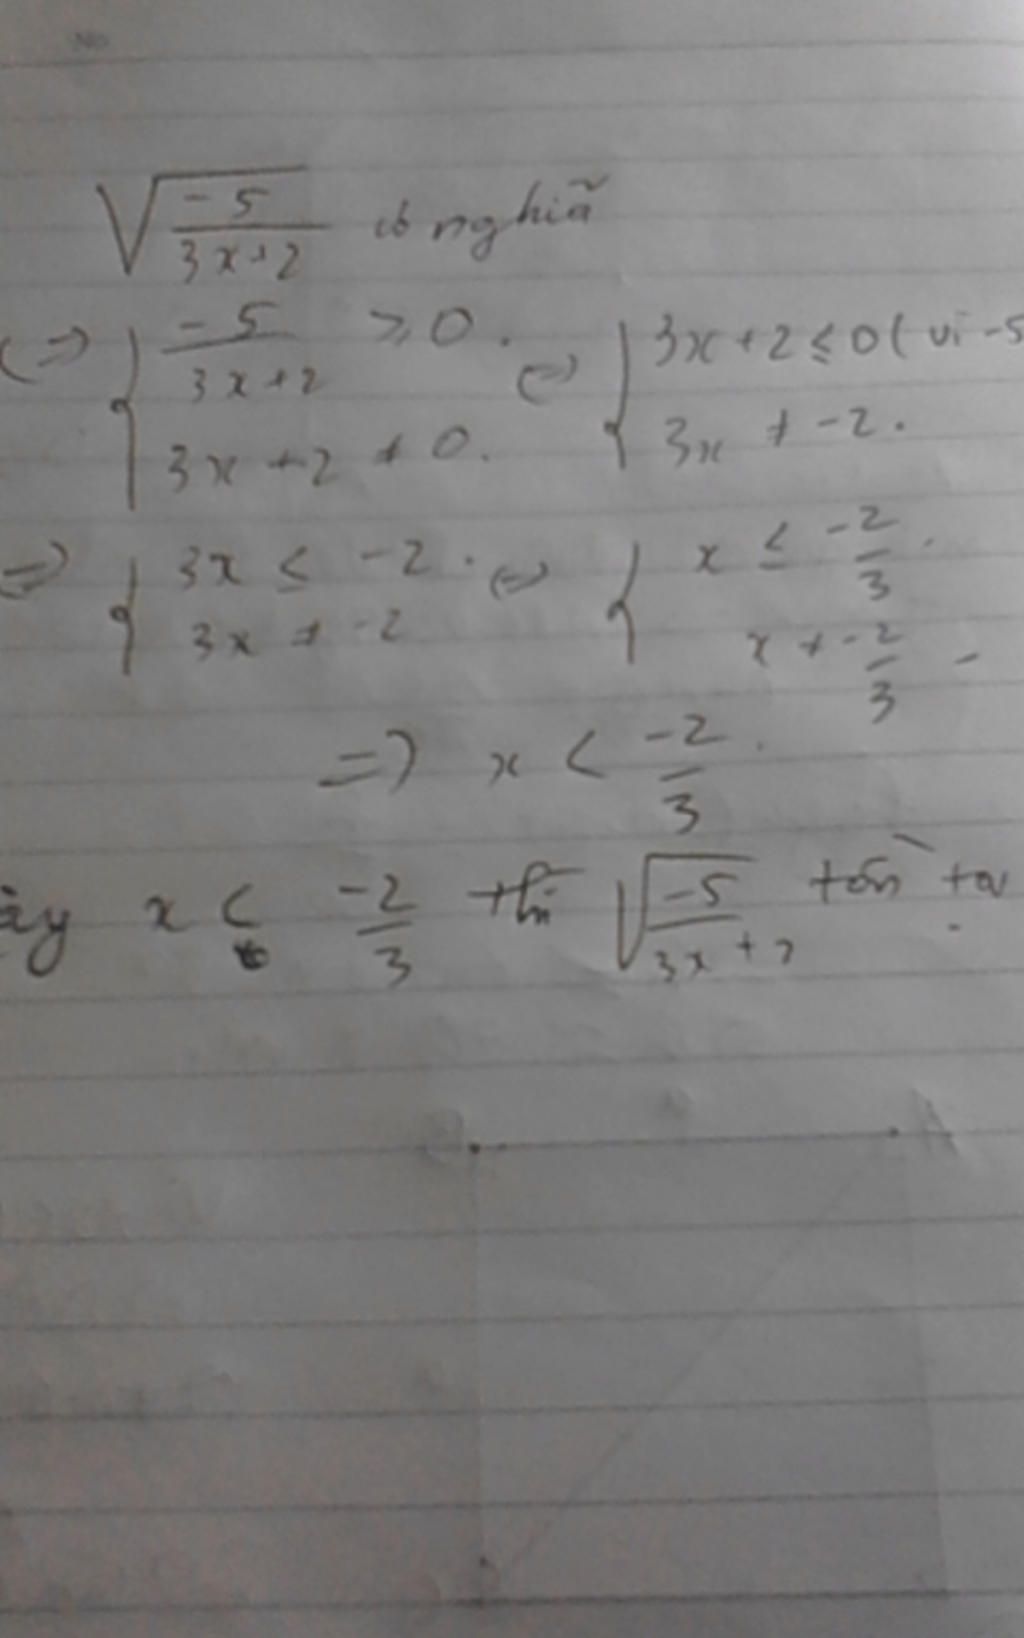 √(-5/(3x+2)) có nghĩa
<=> { -5/(3x+2) ≥ 0. <=> { 3x+2 ≤ 0 (vì -5
3x+2 ≠ 0. 3x ≠ -2.
=> { 3x ≤ -2. <=> { x ≤ -2/3.
3x ≠ -2 x ≠ -2/3
=> x < -2/3.
ậy x < -2/3 thì √(-5/(3x+2)) tồn tạ